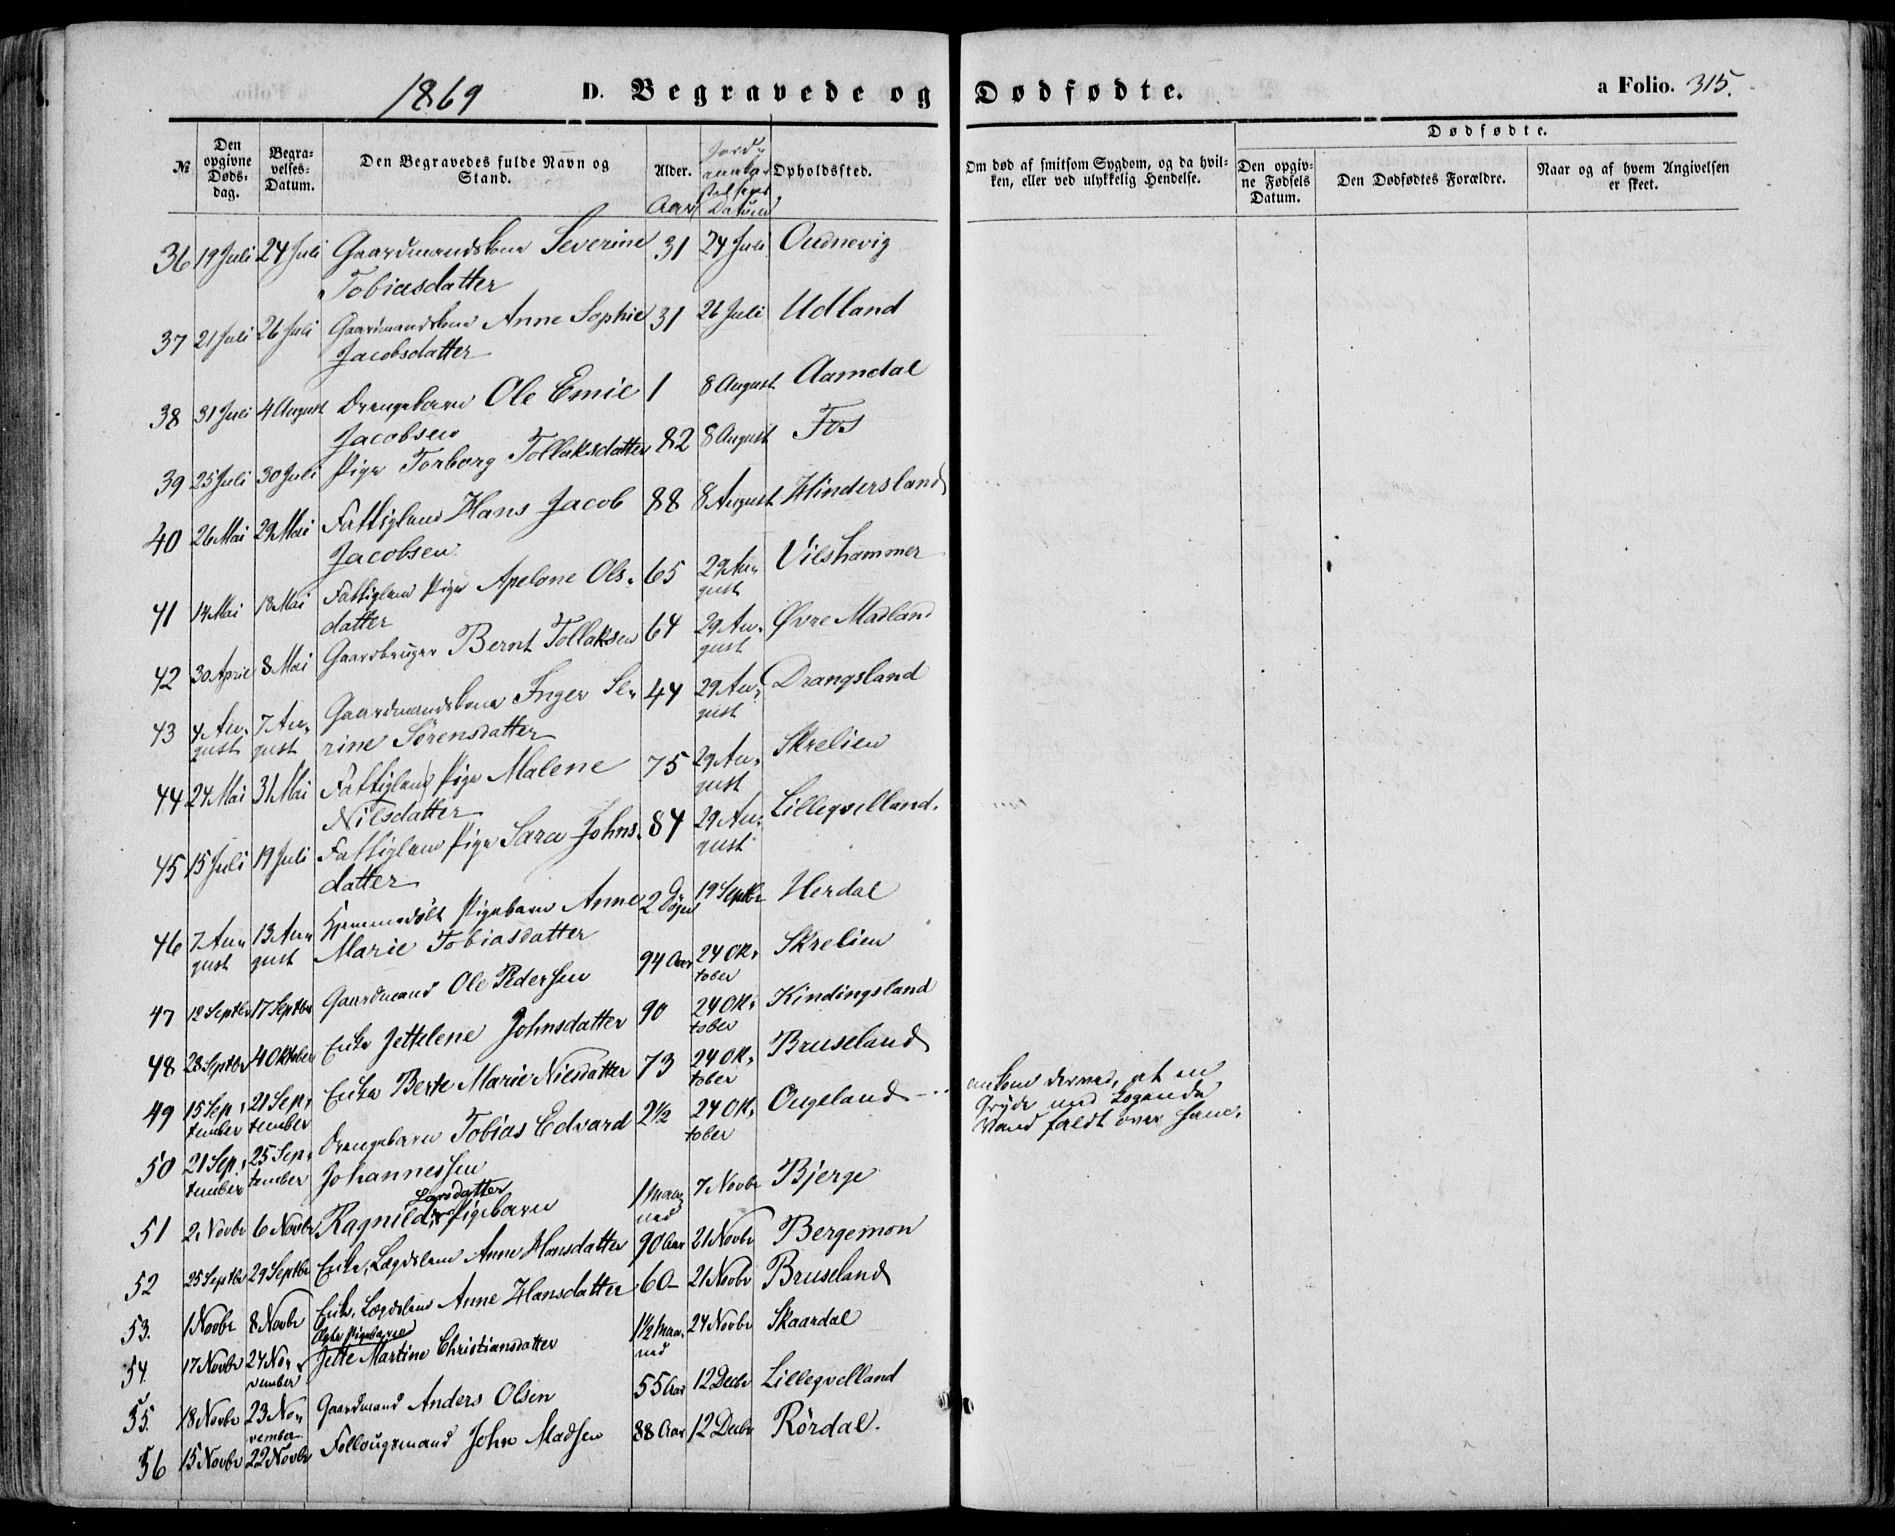 1869 D. Begravede og Dødfødte. a Folio. 315.
№ Den opgivne Døds-dag. Begra-velses-Datum. Den Begravedes fulde Navn og Stand. Alder. Opholdssted. Om død af smitsom Sygdom, og da hvil-ken, eller ved ulykkelig Hendelse. Dødfødte. Den opgiv-ne Fødsels Datum. Den Dødfødtes Forældre. Naar og af hvem Angivelsen er skeet.
Aar Datum
36 19 Juli 24 Juli Gaardmandskone Severine 31 24 Juli Oudnevig
Tobiasdatter
37 21 Juli 26 Juli Gaardmandskone Anne Sophie 31 26 Juli Udland
Jacobsdatter
38 31 Juli 4 August Drengebarn Ole Emil 1 8 August Aamdal
Jacobsen
39 25 Juli 30 Juli Pige Torborg Tollaksdatter 82 8 August Fos
40 26 Mai 29 Mai Fattiglem Hans Jacob 88 8 August Hindersland
Jacobsen
41 14 Mai 18 Mai Fattiglem Pige Apelone Ols- 65 29 Au-gust Vilshammer
datter
42 30 April 8 Mai Gaardbruger Bernt Tollaksen 64 29 Au-gust Øvre Madland
43 4 Au-gust 7 Au-gust Gaardmandskone Inger Se- 44 29 Au-gust Drangsland
rine Sørensdatter
44 24 Mai 31 Mai Fattiglem Pige Malene 75 29 Au-gust Skrelien
Nilsdatter
45 15 Juli 19 Juli Fattiglem Pige Sara Johns- 84 29 Au-gust Lillegvelland.
datter
46 7 Au-gust 13 Au-gust Hjemmedøbt Pigebarn Anne 2 Døgn 19 Septbr Herdal
Marie Tobiasdatter
47 12 Septbr 17 Septbr Gaardmand Ole Pedersen 94 Aar 24 Ok-tober Skrelien
48 28 Septbr 4 Oktober Enke Jettelene Johnsdatter 90 24 Ok-tober Kindingsland
49 15 Sep-tember 21 Sep-tember Enke Berte Marie Nilsdatter 73 24 Ok-tober Bruseland
50 21 Sep-tember 25 Sep-tember Drengebarn Tobias Edvard 2½ 24 Ok-tober Ougeland omkom derved, at en
Johannessen Gryde med kogende
Vand faldt over ham.
51 2 Novbr 6 Novbr Ragnild Larsdatter Pigebarn 1 Maa-ned 7 Novbr Bjerge
52 25 Septbr 29 Septbr Enke, Lægdslem Anne Hansdatter 90 Aar 21 Novbr Bergemon
53. 1 Novbr 8 Novbr Enke, Lægdslem Anne Hansdatter 60 21 Novbr Bruseland
54. 17 Novbr 24 No-vember Pigebarn Jette Martine Christiansdatter 1½ Maa-ned 24 Novbr Skaardal
55. 18 Novbr 23 No-vember Gaardmand Anders Olsen 55 Aar 12 Decbr Lillegvelland
56 15 Novbr 22 Novbr Follougsmand John Madsen 88 Aar 12 Decbr Rördal.